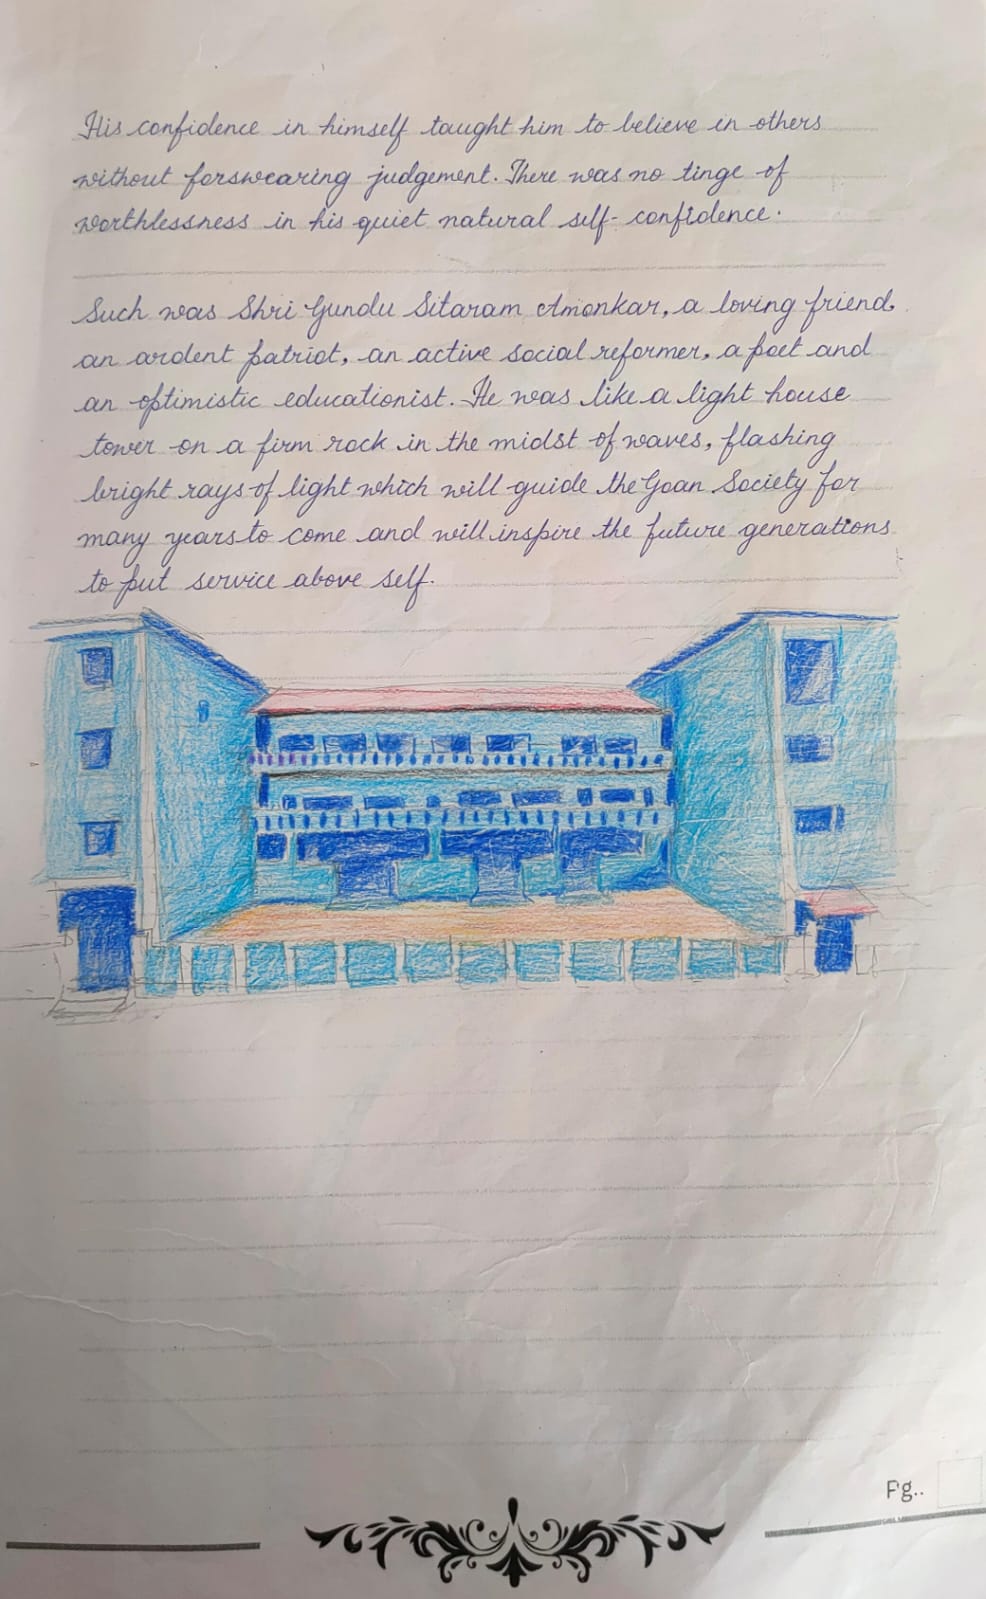 His confidence in himself taught him to believe in others
without forswearing judgement. There was no tinge of
worthlessness in his quiet natural self-confidence.
Such was Shri Gundu Sitaram Amonkar, a loving friend,
an ardent patriot, an active social reformer, a poet and
an optimistic educationist. He was like a light house
tower on a firm rock in the midst of waves, flashing
bright rays of light which will guide the Goan Society for
many years to come and will inspire the future generations
to put service above self.
Pg..